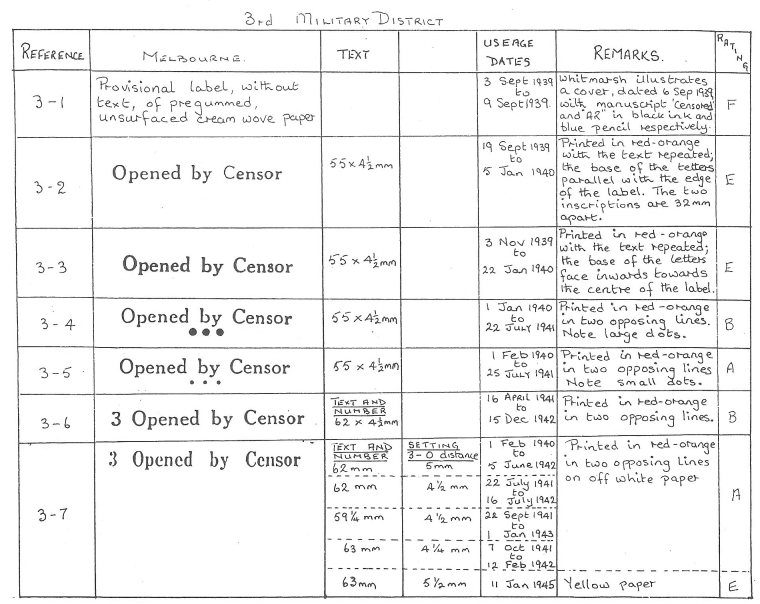 3rd MILITARY DISTRICT
REFERENCE
MELBOURNE.
TEXT
USEAGE
DATES
REMARKS.
RATING
3-1
Provisional label, without
text, of pregummed,
unsurfaced cream wove paper
3 Sept 1939
to
9 Sept 1939.
Whitmarsh illustrates
a cover, dated 6 Sep 1939
with manuscript "Censored"
and "AR" in black ink and
blue pencil respectively.
F
3-2
Opened by Censor
55 x 4½mm
19 Sept 1939
to
5 Jan 1940
Printed in red-orange
with the text repeated;
the base of the letters
parallel with the edge
of the label. The two
inscriptions are 32mm
apart.
E
3-3
Opened by Censor
55 x 4½mm
3 Nov 1939
to
22 Jan 1940
Printed in red-orange
with the text repeated;
the base of the letters
face inwards towards
the centre of the label.
E
3-4
Opened by Censor
●●●
55 x 4½mm
1 Jan 1940
to
22 JULY 1941
Printed in red-orange
in two opposing lines.
Note large dots.
B
3-5
Opened by Censor
•••
55 x 4½mm
1 Feb 1940
to
25 JULY 1941
Printed in red-orange
in two opposing lines
Note small dots.
A
3-6
3 Opened by Censor
TEXT AND
NUMBER
62 x 4½mm
16 APRIL 1941
to
15 Dec 1942
Printed in red-orange
in two opposing lines.
B
3-7
3 Opened by Censor
TEXT AND
NUMBER
62mm
SETTING
3-O distance
5mm
1 Feb 1940
to
5 June 1942
Printed in red-orange
in two opposing lines
on off white paper
A
62 mm
4½ mm
22 July 1941
to
16 July 1942
59¼ mm
4½ mm
22 Sept 1941
to
1 Jan 1943
63 mm
4¼ mm
7 Oct 1941
to
12 Feb 1942
63mm
5½mm
11 Jan 1945
Yellow paper
E